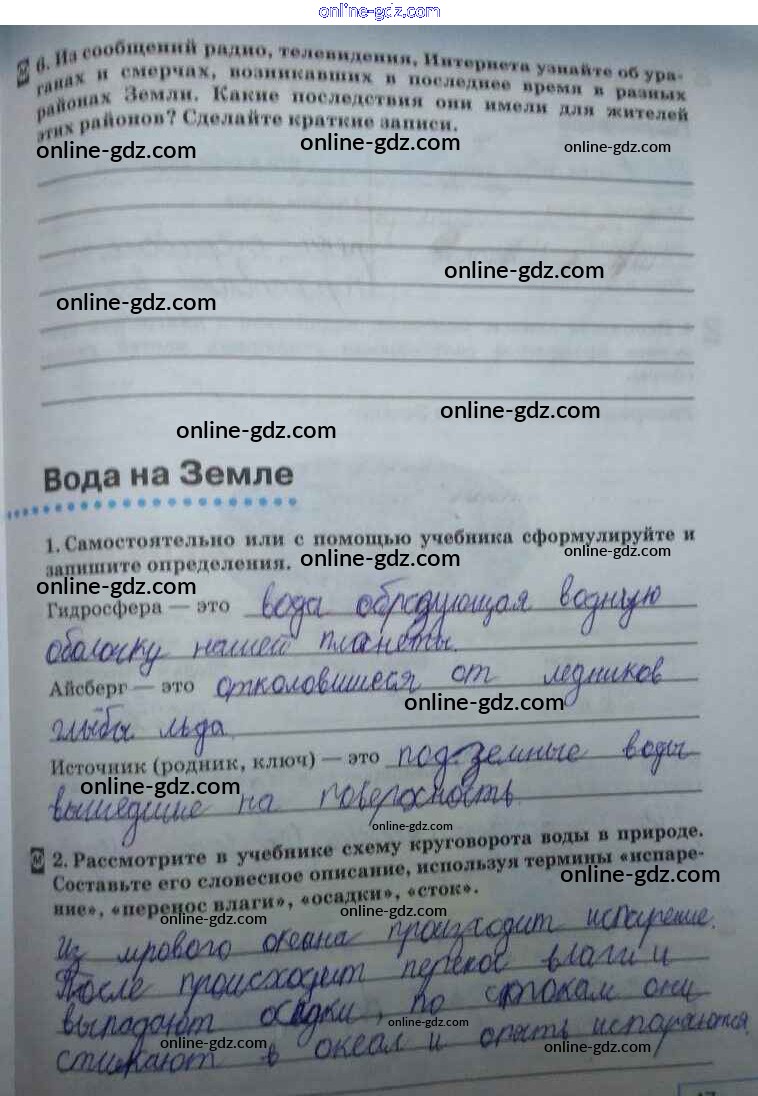 online-gdz.com
6. Из сообщений радио, телевидения, Интернета узнайте об ура-
ганах и смерчах, возникавших в последнее время в разных
районах Земли. Какие последствия они имели для жителей
этих районов? Сделайте краткие записи.
online-gdz.com online-gdz.com online-gdz.com
online-gdz.com
online-gdz.com
online-gdz.com
online-gdz.com
Вода на Земле
1. Самостоятельно или с помощью учебника сформулируйте и
запишите определения. online-gdz.com online-gdz.com
online-gdz.com
Гидросфера — это вода образующая водную
оболочку нашей планеты.
Айсберг — это отколовшиеся от ледников
online-gdz.com
глыбы льда.
Источник (родник, ключ) — это подземные воды
online-gdz.com
вышедшие на поверхность
online-gdz.com
2. Рассмотрите в учебнике схему круговорота воды в природе.
Составьте его словесное описание, используя термины «испаре-
online-gdz.com
ние», «перенос влаги», «осадки», «сток».
online-gdz.com online-gdz.com
Из мрового океана происходит испарение.
После происходит перенос влаги и
выпадают осадки, по стокам они
online-gdz.com
стикают в океан и опять испараются.
online-gdz.com online-gdz.com